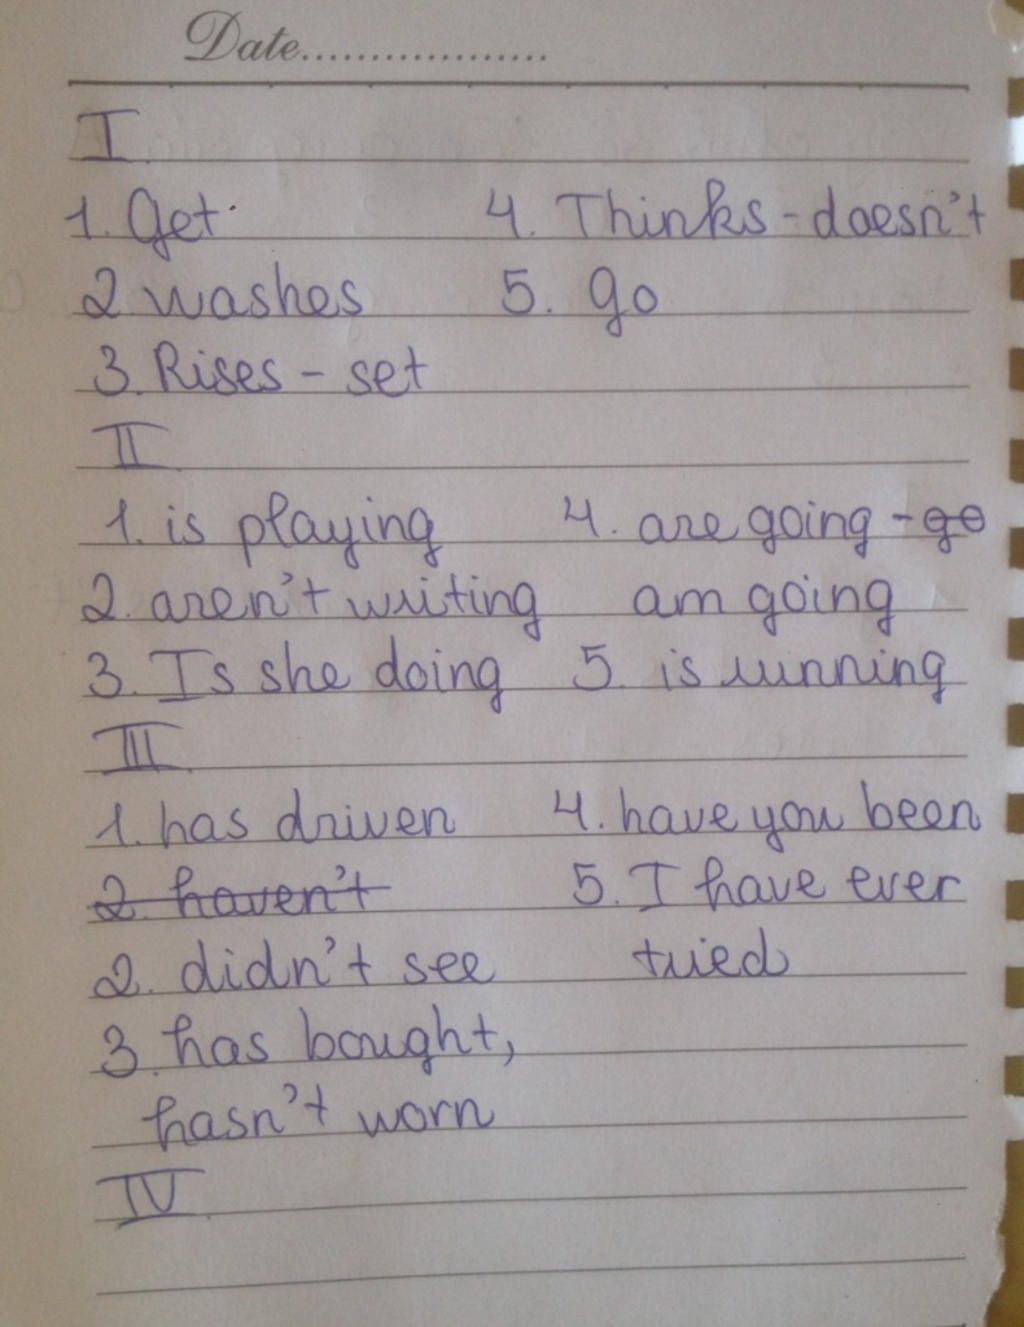 Date..................
I
1. Get 4. Thinks - doesn't
2. washes 5. go
3. Rises - set
II
1. is playing 4. are going - go
2. aren't writing am going
3. Is she doing 5. is running
III
1. has driven 4. have you been
2. haven't 5. I have ever
2. didn't see tried
3. has bought,
hasn't worn
IV